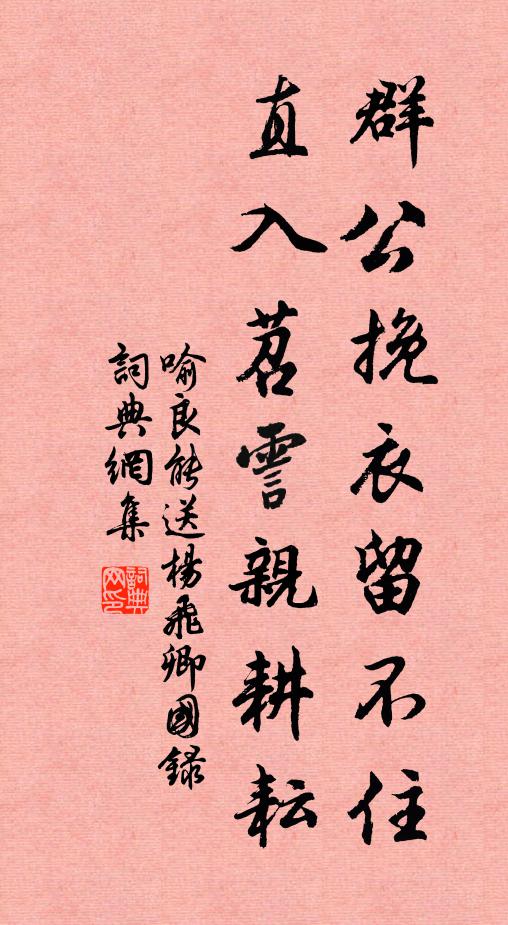 群公挽衣留不住
直入苕霅親耕耘
喻良能送楊飛卿國錄
詞典網集
詞典
网印